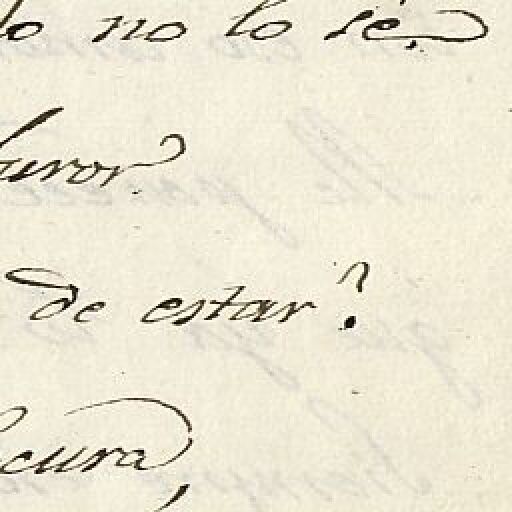 lo no lo sé.
furor.
de estar?
ocura,